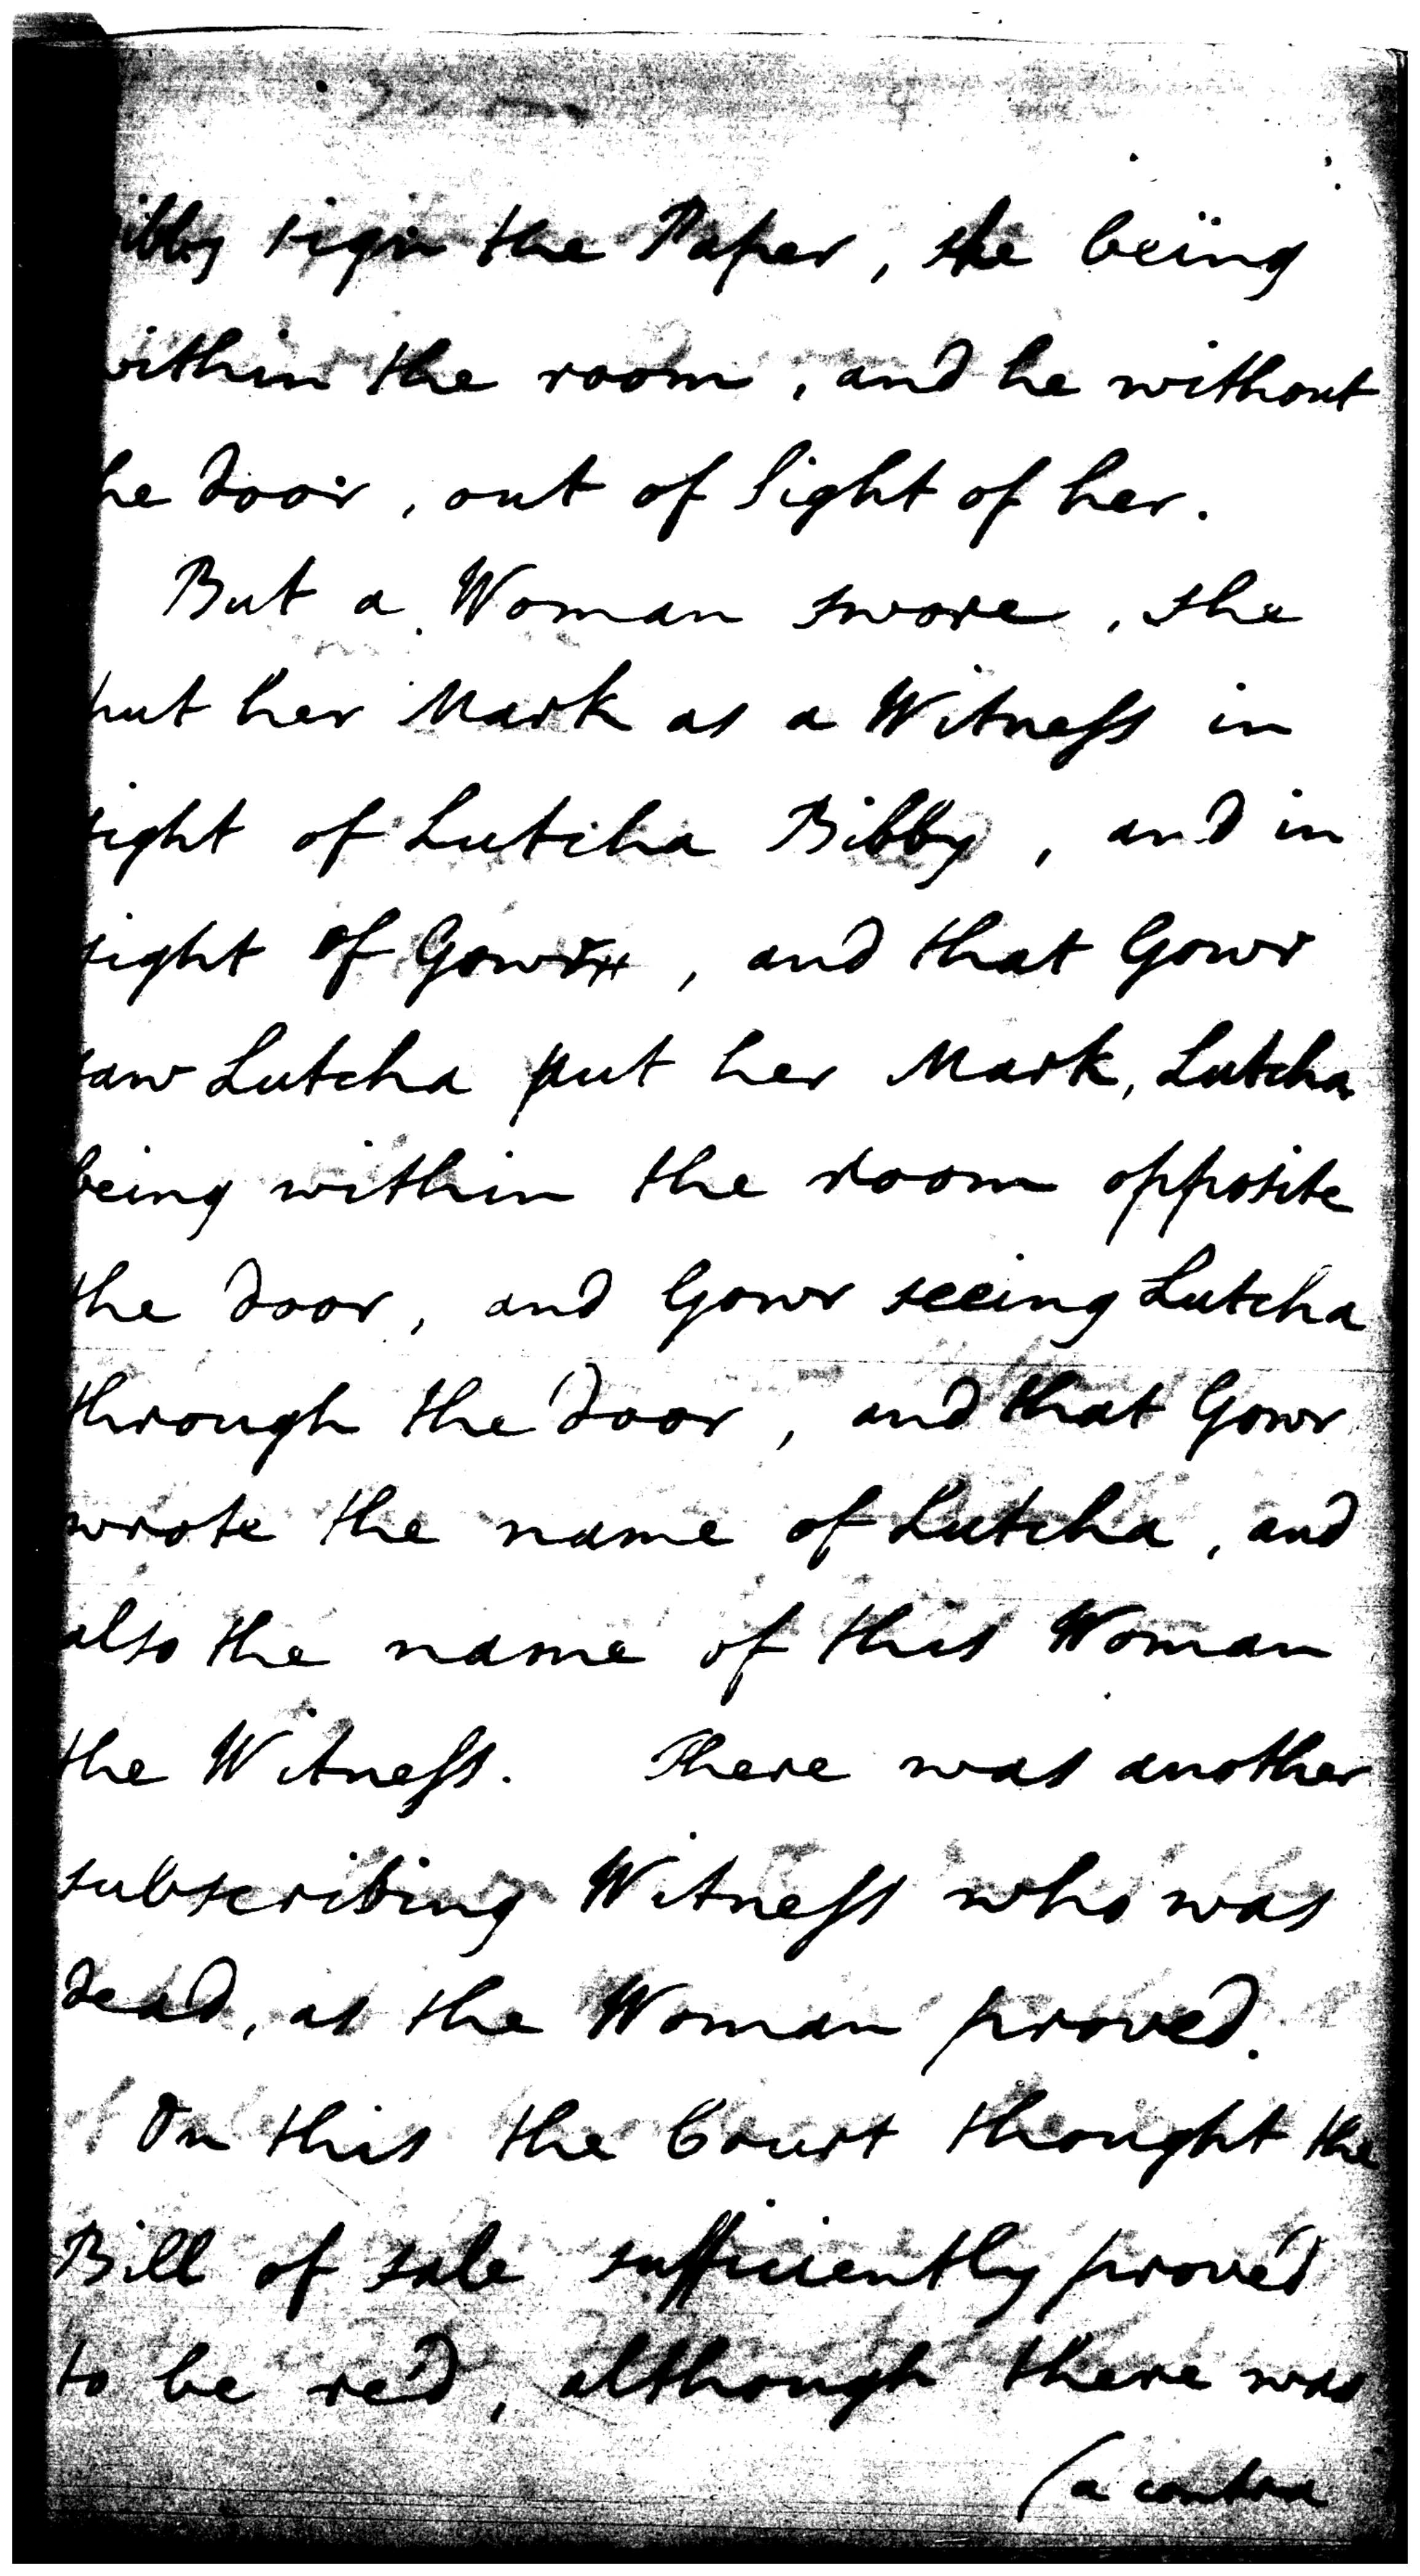 ibby sign the Paper, she being
within the room, and he without
he door, out of sight of her.
But a Woman swore, she
put her Mark as a Witness in
sight of Lutcha Bibby, and in
sight of Gowr, and that Gowr
saw Lutcha put her Mark, Lutcha
being within the room opposite
the door, and Gowr seeing Lutcha
through the door, and that Gowr
wrote the name of Lutcha, and
also the name of this Woman
the Witness. There was another
subscribing Witness who was
dead, as the Woman proved.
On this the Court thought the
Bill of sale sufficiently proved
to be red, although there was
(a contra